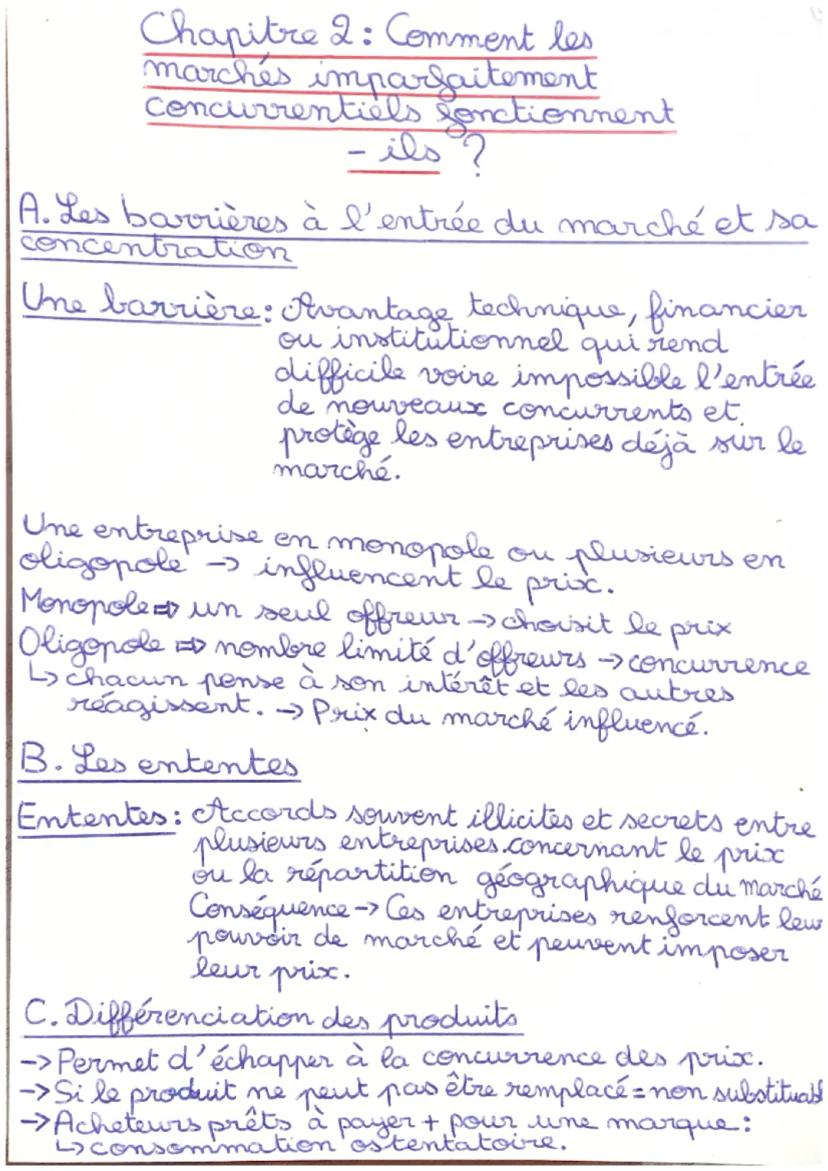 Chapitre 2 : Comment les
marchés imparfaitement
concurrentiels fonctionnent
- ils ?
A. Les barrières à l'entrée du marché et sa
concentration
Une barrière : Avantage technique, financier
ou institutionnel qui rend
difficile voire impossible l'entrée
de nouveaux concurrents et
protège les entreprises déjà sur le
marché.
Une entreprise en monopole ou plusieurs en
oligopole → influencent le prix.
Monopole ⇒ un seul offreur → choisit le prix
Oligopole ⇒ nombre limité d'offreurs → concurrence
↳ chacun pense à son intérêt et les autres
réagissent. → Prix du marché influencé.
B. Les ententes
Ententes : Accords souvent illicites et secrets entre
plusieurs entreprises concernant le prix
ou la répartition géographique du marché
Conséquence → Ces entreprises renforcent leur
pouvoir de marché et peuvent imposer
leur prix.
C. Différenciation des produits
→ Permet d'échapper à la concurrence des prix.
→ Si le produit ne peut pas être remplacé = non substituabl
→ Acheteurs prêts à payer + pour une marque :
↳ consommation ostentatoire.